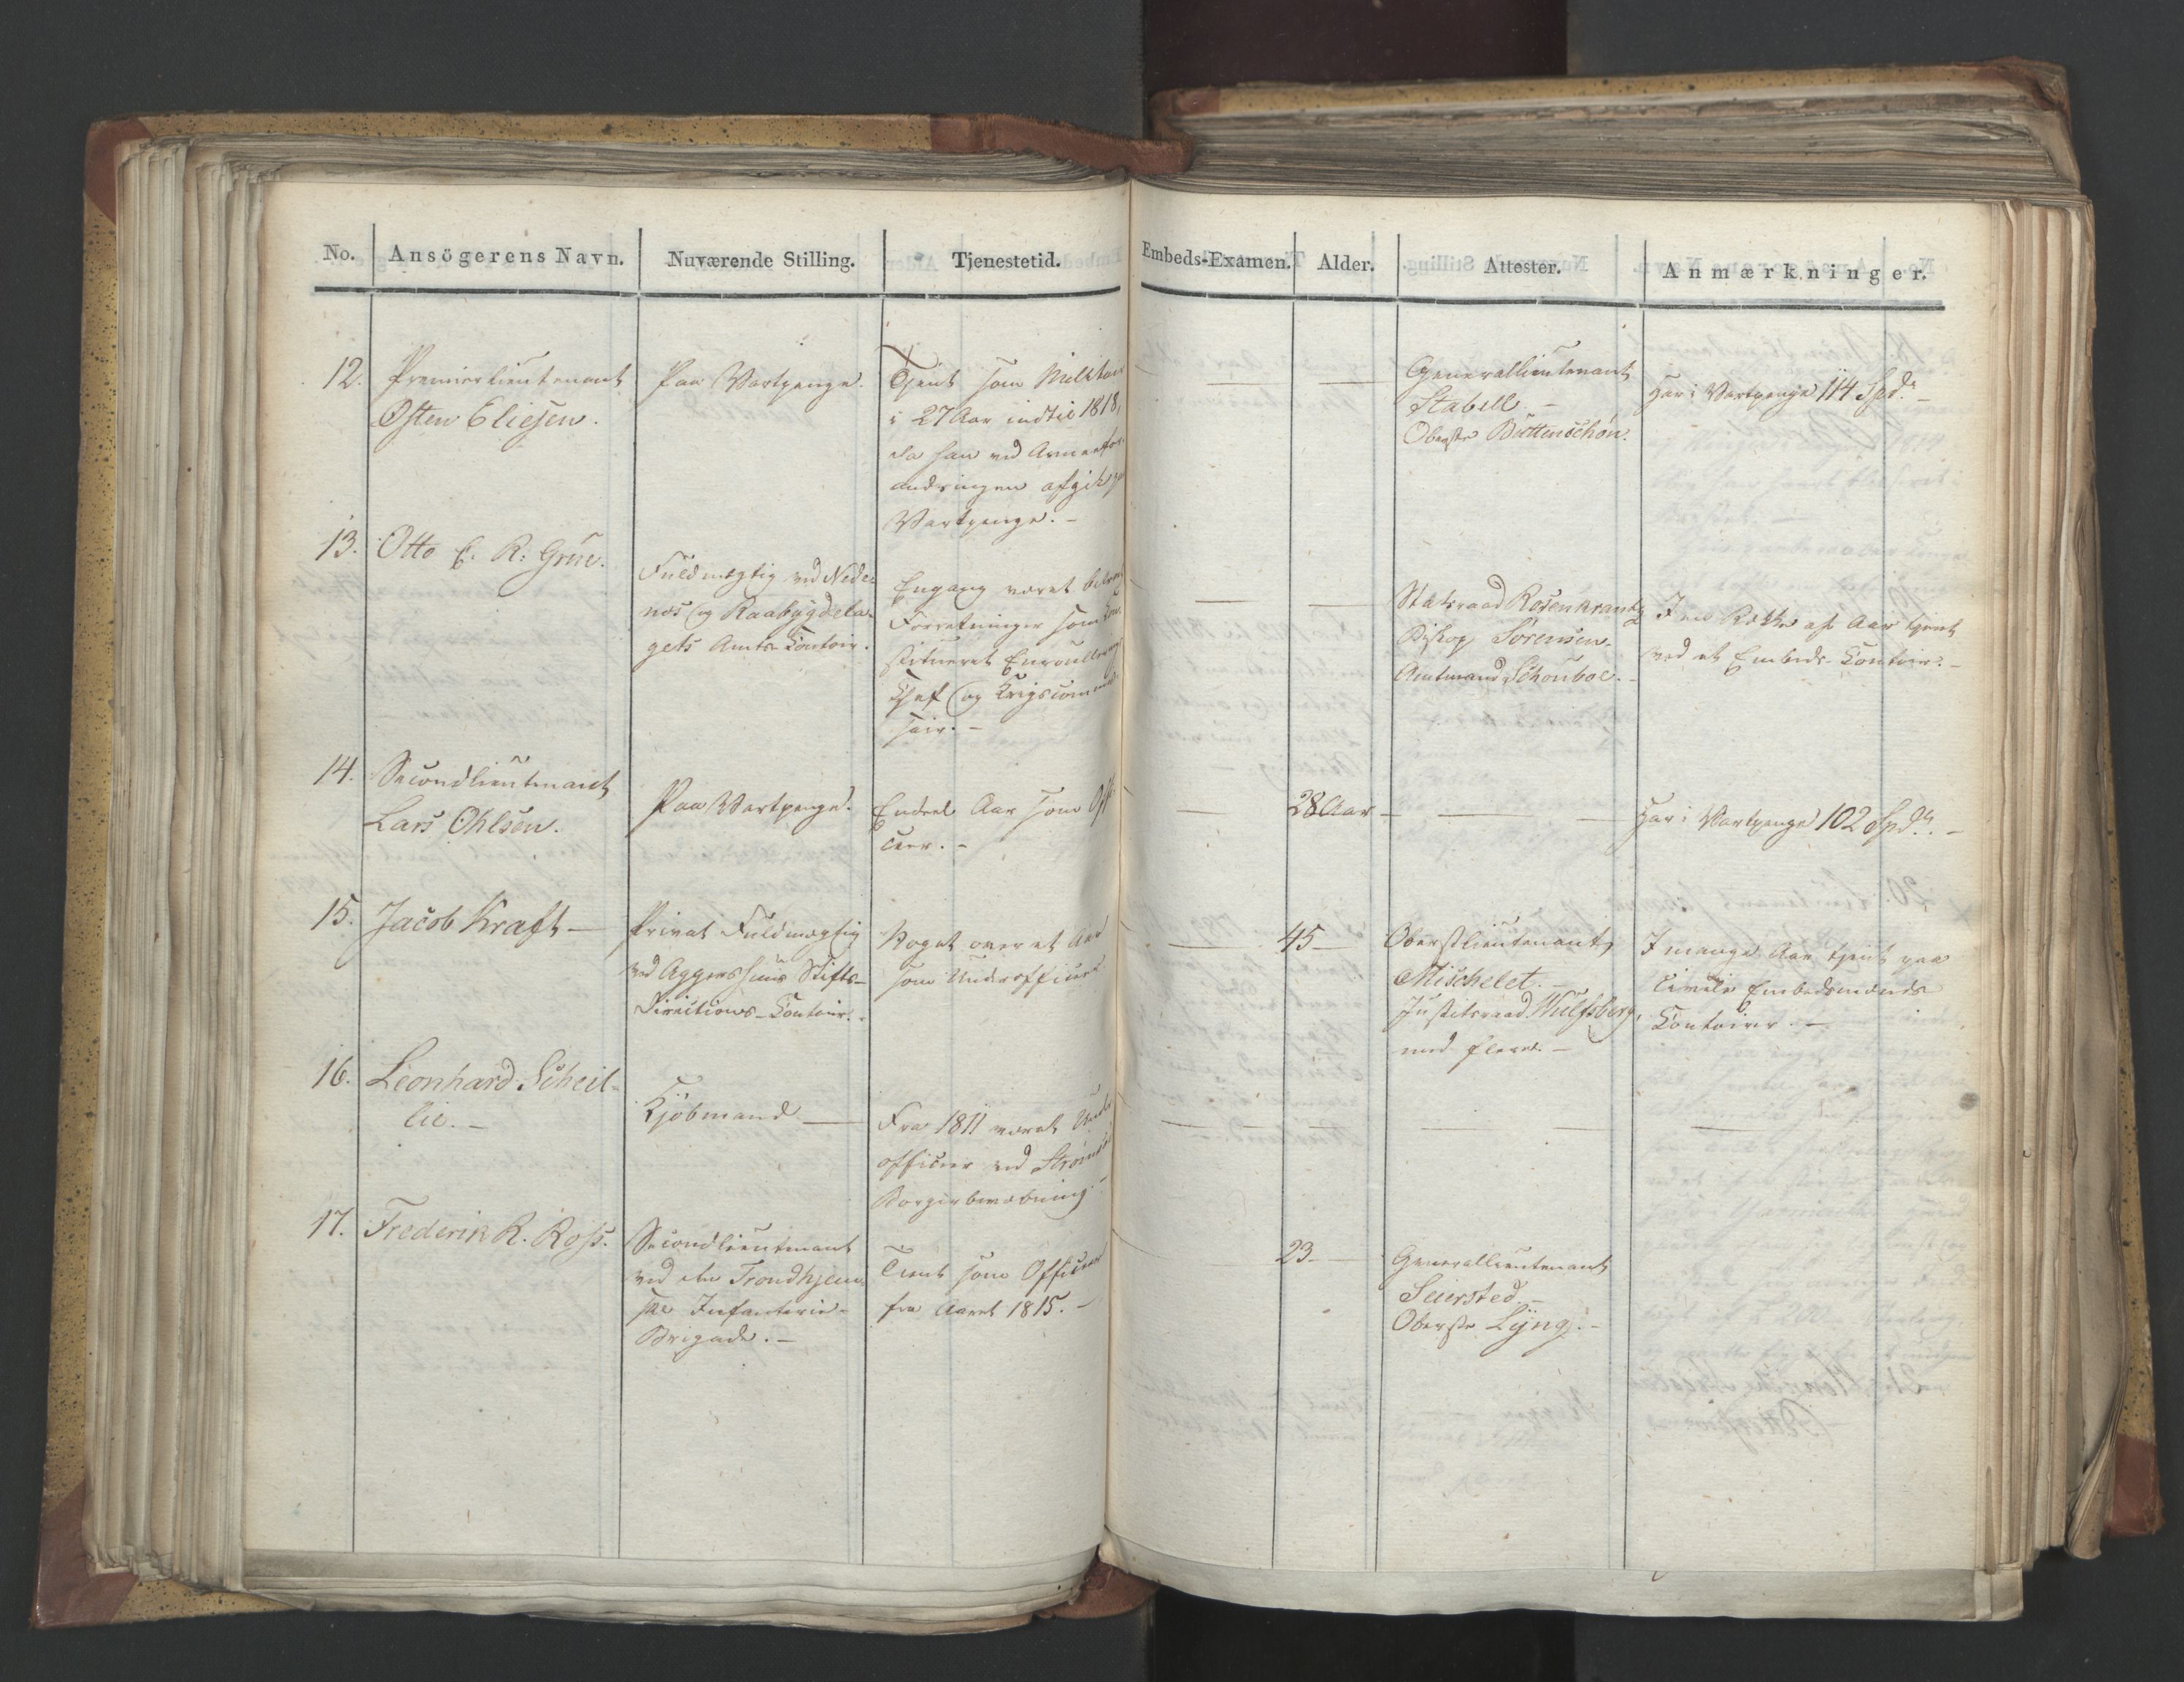 No. Ansögerens Navn. Nuværende Stilling. Tjenestetid. Embeds-Examen. Alder. Attester. Anmærkninger.
12. Premierlieutenant
Østen Eliesen.
Paa Vartpenge.
Tjent som Militair
i 27 Aar indtil 1818,
da han ved Armeefor-
andringen afgik paa
Vartpenge. -
Generallieutenant
Stabell. -
Oberste Büttenschøn.
Har i Vartpenge 114 Spd. -
13. Otto E. R: Grüe.
Fuldmægtig ved Nede-
næs og Raabygdela-
gets Amts-Contoir.
Engang været betroet
Forretninger som Con-
stitueret Enroullerings
Chef og Krigscommis-
sair. -
Statsraad Rosenkrantz
Biskop Sørensen.
Amtmand Schouboe. -
I en Række af Aar tjent
ved et Embeds-Contoir. -
14. Secondlieutenant
Lars Ohlsen.
Paa Vartpenge.
Endeel Aar som Offi-
ceer. -
28 Aar
Har i Vartpenge 102 Spd. -
15. Jacob Kraft -
Privat Fuldmægtig
ved Aggershuus Stifts-
Directions-Contoir. -
Noget over et Aar
som Underofficeer
45 -
Oberstlieutenant
Mischelet. -
Justitsraad Wulfsberg,
med flere. -
I mange Aar tjent paa
civile Embedsmænds
Contoirer. -
16. Leonhard Scheit-
lie. -
Kjøbmand -
Fra 1811 været Under
officeer ved Strømsø
Borgerbevæbning. -
17. Frederik R. Ross.
Secondlieutenant
ved den Trondhjem-
ske Infanterie-
Brigade. -
Tient som Officeer
fra Aaret 1815. -
23 -
Generallieutenant
Seiersted. -
Oberste Lÿng. -